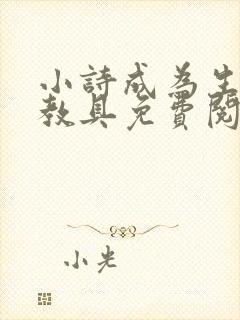 小詩成為生
教具免費閱
小光